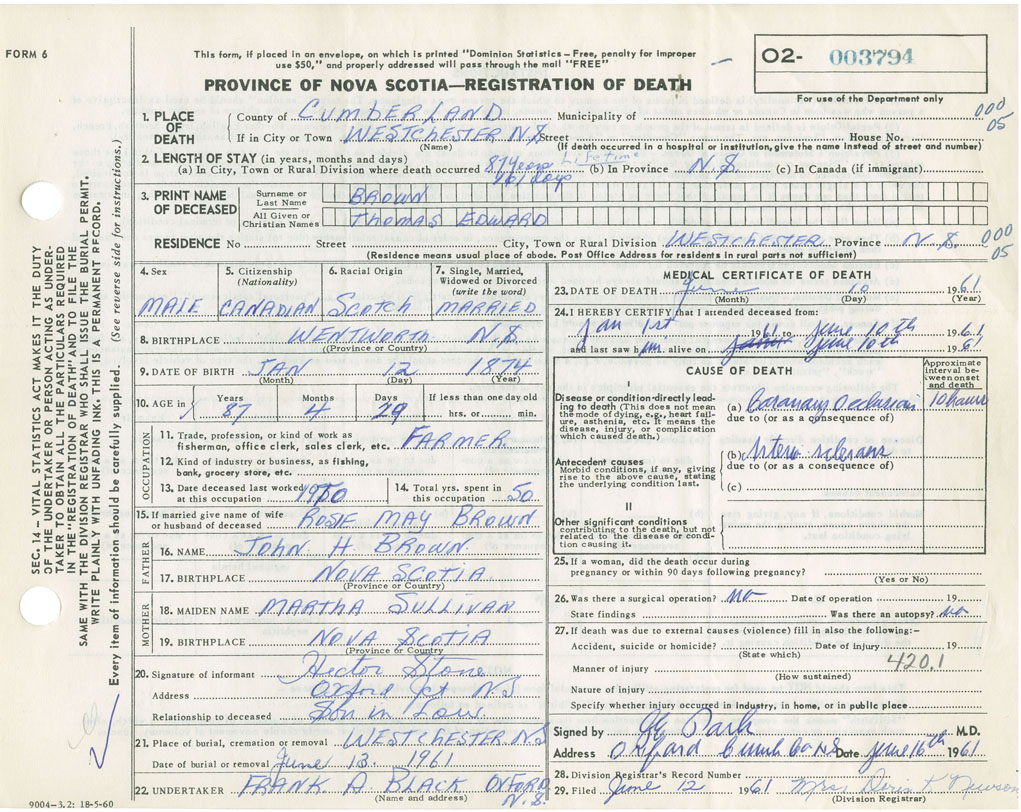 FORM 6
This form, if placed in an envelope, on which is printed "Dominion Statistics – Free, penalty for improper
use $50," and properly addressed will pass through the mail "FREE"
PROVINCE OF NOVA SCOTIA—REGISTRATION OF DEATH
O2- 003794
For use of the Department only
1. PLACE OF DEATH
County of CUMBERLAND Municipality of 000
If in City or Town WESTCHESTER N.S. Street House No. 05
(Name) (If death occurred in a hospital or institution, give the name instead of street and number)
2. LENGTH OF STAY (in years, months and days) Lifetime
(a) In City, Town or Rural Division where death occurred 87 years (b) In Province N.S. (c) In Canada (if immigrant)
161 days
3. PRINT NAME OF DECEASED
Surname or Last Name BROWN
All Given or Christian Names THOMAS EDWARD
RESIDENCE No Street City, Town or Rural Division WESTCHESTER Province N.S. 000
05
(Residence means usual place of abode. Post Office Address for residents in rural parts not sufficient)
4. Sex MALE
5. Citizenship (Nationality) CANADIAN
6. Racial Origin SCOTCH
7. Single, Married, Widowed or Divorced (write the word) MARRIED
8. BIRTHPLACE WENTWORTH N.S.
(Province or Country)
9. DATE OF BIRTH JAN 12 1874
(Month) (Day) (Year)
10. AGE in Years Months Days If less than one day old
87 4 29 hrs. or min.
OCCUPATION
11. Trade, profession, or kind of work as
fisherman, office clerk, sales clerk, etc. FARMER
12. Kind of industry or business, as fishing,
bank, grocery store, etc.
13. Date deceased last worked at this occupation 1950
14. Total yrs. spent in this occupation 50
15. If married give name of wife
or husband of deceased ROSIE MAY BROWN
FATHER
16. NAME JOHN H BROWN
17. BIRTHPLACE NOVA SCOTIA
(Province or Country)
MOTHER
18. MAIDEN NAME MARTHA SULLIVAN
19. BIRTHPLACE NOVA SCOTIA
(Province or Country
20. Signature of informant Hector Stone
Address Oxford Jct N.S
Relationship to deceased Son in Law
21. Place of burial, cremation or removal WESTCHESTER N.S
Date of burial or removal June 13. 1961
22. UNDERTAKER FRANK A BLACK OXFORD
N.S.
(Name and address)
9004–3.2: 18-5-60
MEDICAL CERTIFICATE OF DEATH
23. DATE OF DEATH June 10 1961
(Month) (Day) (Year)
24. I HEREBY CERTIFY that I attended deceased from:
Jan 1st 1961 to June 10th 1961
and last saw him alive on June 10th 1961
CAUSE OF DEATH
Approximate interval between onset and death
I
Disease or condition directly leading to death (This does not mean
the mode of dying, e.g., heart failure, asthenia, etc. It means the
disease, injury, or complication
which caused death.)
(a) Coronary Occlusion 10 hours
due to (or as a consequence of)
Antecedent causes
Morbid conditions, if any, giving
rise to the above cause, stating
the underlying condition last.
(b) Arterio sclerosis
due to (or as a consequence of)
(c)
II
Other significant conditions
contributing to the death, but not
related to the disease or condition causing it.
25. If a woman, did the death occur during
pregnancy or within 90 days following pregnancy?
(Yes or No)
26. Was there a surgical operation? no Date of operation 19
State findings Was there an autopsy? no
27. If death was due to external causes (violence) fill in also the following:–
Accident, suicide or homicide? Date of injury 19
(State which) 420.1
Manner of injury
(How sustained)
Nature of injury
Specify whether injury occurred in industry, in home, or in public place
Signed by Park M.D.
Address Oxford Cumb Co N.S Date June 16th 1961
28. Division Registrar's Record Number
29. Filed June 12 1961 Mrs. Doris
(Division Registrar)
SEC. 14 – VITAL STATISTICS ACT MAKES IT THE DUTY
OF THE UNDERTAKER OR PERSON ACTING AS UNDER-
TAKER TO OBTAIN ALL THE PARTICULARS REQUIRED
IN THE "REGISTRATION OF DEATH" AND TO FILE THE
SAME WITH THE DIVISION REGISTRAR WHO SHALL ISSUE THE BURIAL PERMIT.
WRITE PLAINLY WITH UNFADING INK. THIS IS A PERMANENT RECORD.
Every item of information should be carefully supplied. (See reverse side for instructions.)